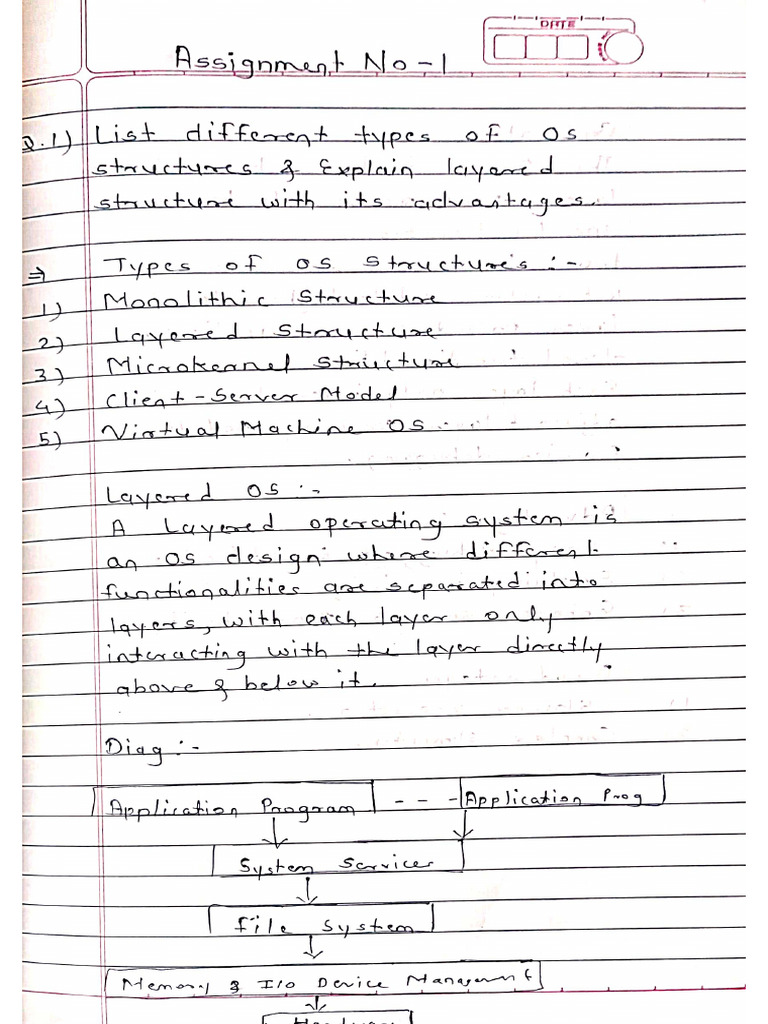 DATE
Assignment No-1
Q.1) List different types of Os
structures & Explain layered
structure with its advantages.
⇒ Types of os structures :-
1) Monolithic Structure
2) Layered Structure
3) Microkernel Structure
4) Client-Server Model
5) Virtual Machine OS.
Layered OS :-
A Layered operating system is
an OS design where different
functionalities are separated into
layers, with each layer only
interacting with the layer directly
above & below it.
Diag :-
Application Program - - - Application Prog
System Services
File System
Memory & I/o Device Management
Hardware